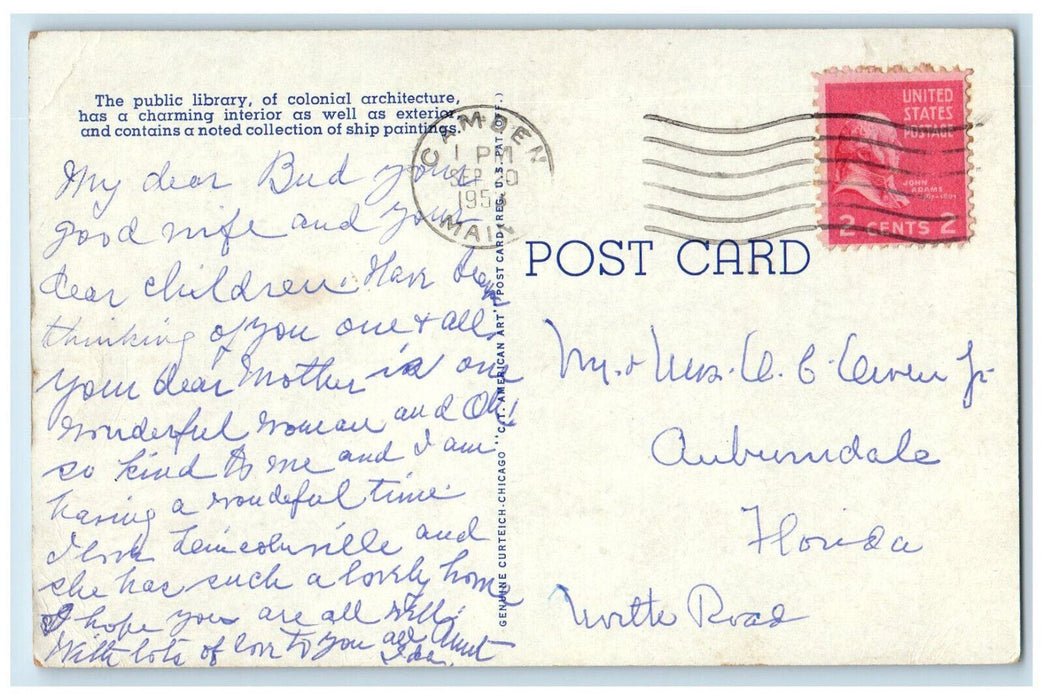 The public library, of colonial architecture,
has a charming interior as well as exterior
and contains a noted collection of ship paintings.
CAMDEN
1 PM
SEP 20
195
MAIN
UNITED
STATES
POSTAGE
JOHN
ADAMS
2 CENTS 2
POST CARD
GENUINE CURTEICH-CHICAGO "C.T. AMERICAN ART" POST CARD (REG. U.S. PAT. OFF.)
My dear Bud your
good wife and your
dear children. Have been
thinking of you one & all.
your dear Mother is one
wonderful woman and Oh!
so kind to me and I am
having a wondeful time.
I love Lincolnville and
she has such a lovely home
I hope you are all well.
With lots of love to you all Aunt
Ida.
Mr. & Mrs. A. C. Owen Jr
Auburndale
Florida
North Road